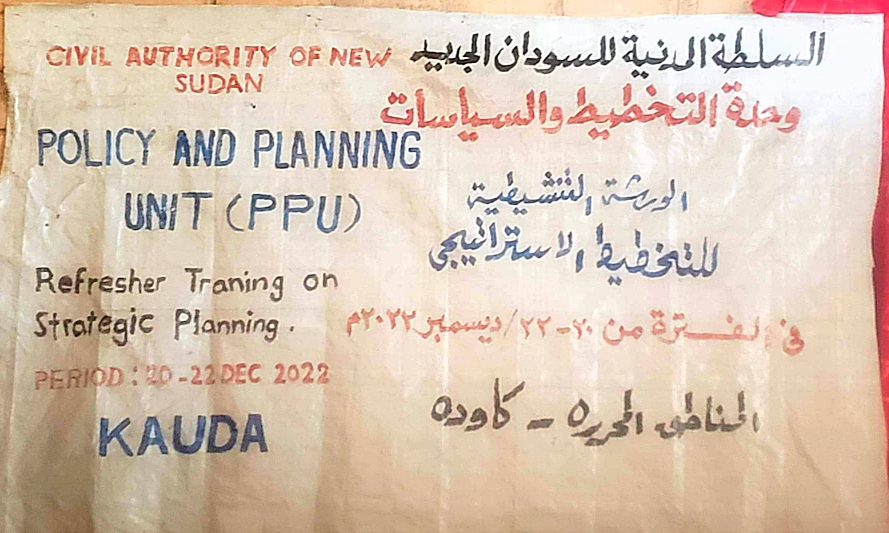 CIVIL AUTHORITY OF NEW
SUDAN
POLICY AND PLANNING
UNIT (PPU)
Refresher Traning on
Strategic Planning.
PERIOD: 20-22 DEC 2022
KAUDA
السلطة المدنية للسودان الجديد
وحدة التخطيط والسياسات
الورشة التنشيطية
للتخطيط الاستراتيجي
في الفترة من ٢٠-٢٢/ديسمبر ٢٠٢٢م
المناطق المحرره - كاوده